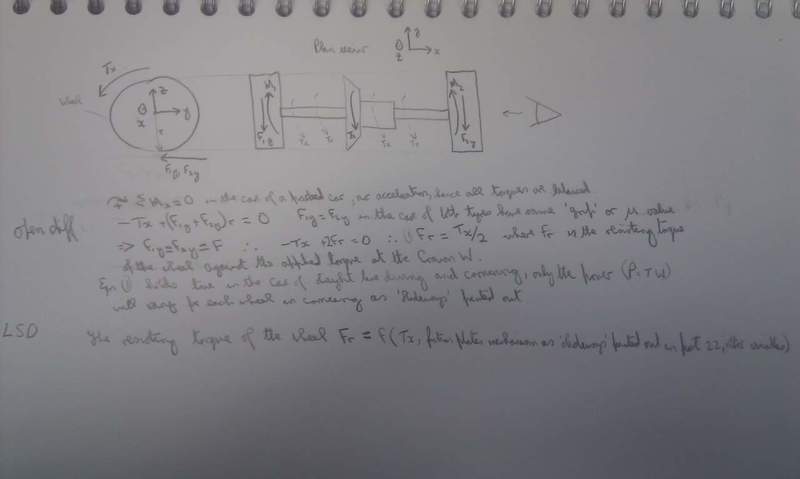 Plan view
z
x
Tx
Wheel
z
y
x
r
F1y, F2y
M1
F1y
Tx
M2
F2y
ΣMx=0 in the case of a parked car, no acceleration, hence all torques are balanced
open diff
-Tx+(F1y+F2y)r=0 F1y=F2y in the case of both tyres have same 'grip' or μ value
⇒ F1y=F2y=F ∴ -Tx+2Fr=0 ∴ ① Fr=Tx/2 where Fr is the resisting torque
of the wheel against the applied torque at the Crown W.
Eqn ① holds true in the case of straight line driving and cornering, only the power (P=Tω)
will vary for each wheel in cornering as 'slideways' pointed out
LSD
The resisting torque of the wheel Fr = f(Tx, friction plates mechanism as 'slideways' pointed out in post 22,